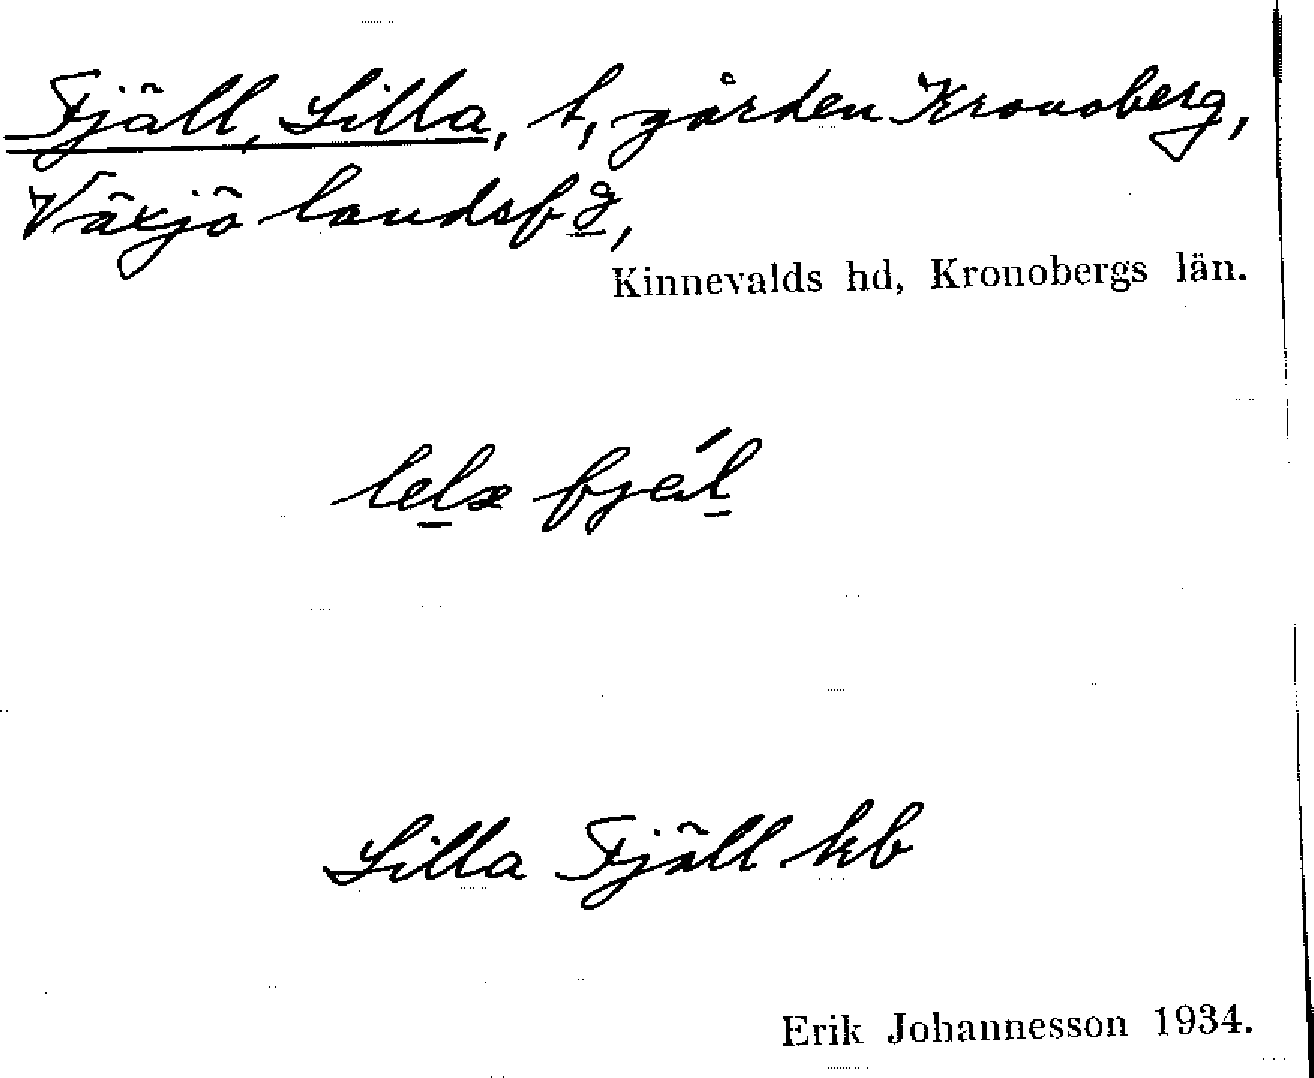 Fjäll, Lilla, t, gården Kronoberg,
Växjö landsfg,
Kinnevalds hd, Kronobergs län.
lelæ fjæ´l
Lilla Fjäll kb
Erik Johannesson 1934.